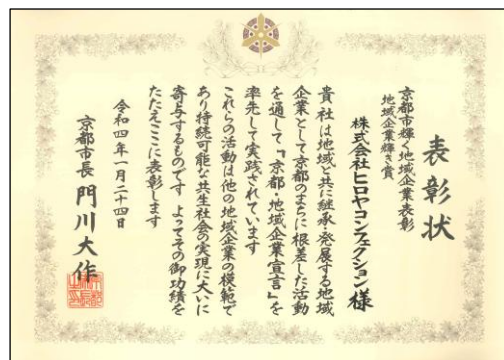 表彰状
京都市輝く地域企業表彰
地域企業輝き賞
株式会社ヒロヤコンフェクション 様
貴社は地域と共に継承・発展する地域
企業として京都のまちに根差した活動
を通して「京都・地域企業宣言」を
率先して実践されています
これらの活動は他の地域企業の模範で
あり持続可能な共生社会の実現に大いに
寄与するものです よってその御功績を
たたえここに表彰します
令和四年一月二十四日
京都市長 門川大作